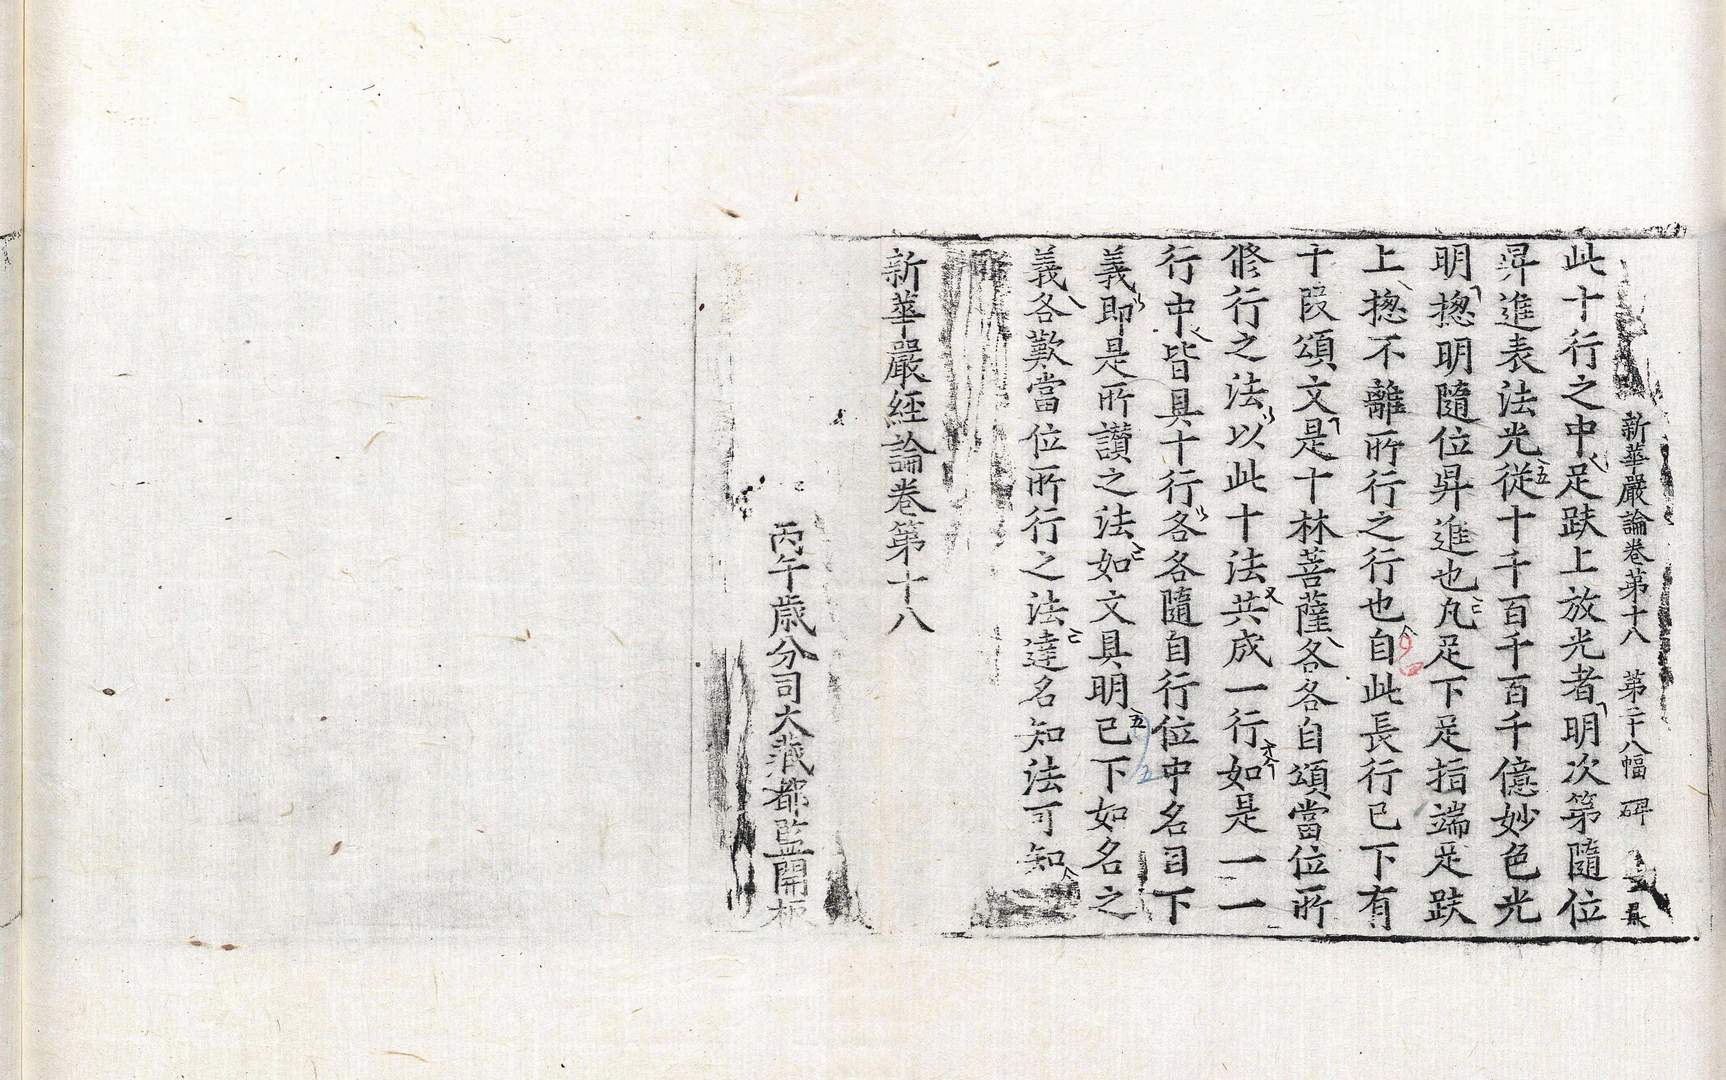 新華嚴論卷第十八 第二十八幅 碑
此十行之中足趺上放光者明次第隨位
昇進表法光從十千百千百千億妙色光
明揔明隨位昇進也凡足下足指端足趺
上揔不離所行之行也自此長行已下有
十段頌文是十林菩薩各各自頌當位所
修行之法以此十法共成一行如是一一
行中皆具十行各各隨自行位中名目下
義即是所讚之法如文具明已下如名之
義各歎當位所行之法達名知法可知
新華嚴經論卷第十八
丙午歲分司大藏都監開板